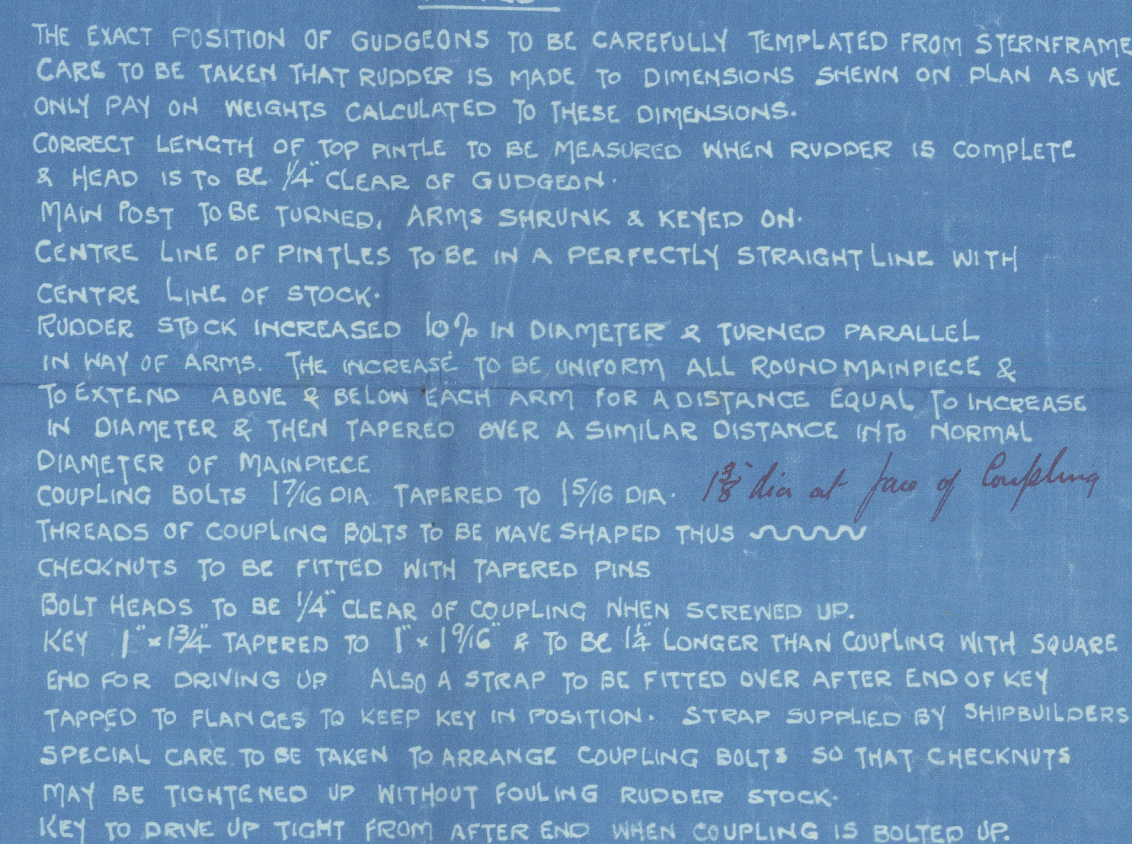 THE EXACT POSITION OF GUDGEONS TO BE CAREFULLY TEMPLATED FROM STERNFRAME
CARE TO BE TAKEN THAT RUDDER IS MADE TO DIMENSIONS SHEWN ON PLAN AS WE
ONLY PAY ON WEIGHTS CALCULATED TO THESE DIMENSIONS.
CORRECT LENGTH OF TOP PINTLE TO BE MEASURED WHEN RUDDER IS COMPLETE
& HEAD IS TO BE 1/4" CLEAR OF GUDGEON.
MAIN POST TO BE TURNED, ARMS SHRUNK & KEYED ON.
CENTRE LINE OF PINTLES TO BE IN A PERFECTLY STRAIGHT LINE WITH
CENTRE LINE OF STOCK.
RUDDER STOCK INCREASED 10% IN DIAMETER & TURNED PARALLEL
IN WAY OF ARMS. THE INCREASE TO BE UNIFORM ALL ROUND MAINPIECE &
TO EXTEND ABOVE & BELOW EACH ARM FOR A DISTANCE EQUAL TO INCREASE
IN DIAMETER & THEN TAPERED OVER A SIMILAR DISTANCE INTO NORMAL
DIAMETER OF MAINPIECE
COUPLING BOLTS 1 7/16 DIA TAPERED TO 1 5/16 DIA. 1 3/8" dia at face of Coupling
THREADS OF COUPLING BOLTS TO BE WAVE SHAPED THUS
CHECKNUTS TO BE FITTED WITH TAPERED PINS
BOLT HEADS TO BE 1/4" CLEAR OF COUPLING WHEN SCREWED UP.
KEY 1" × 1 3/4" TAPERED TO 1" × 1 9/16" & TO BE 1 1/4" LONGER THAN COUPLING WITH SQUARE
END FOR DRIVING UP ALSO A STRAP TO BE FITTED OVER AFTER END OF KEY
TAPPED TO FLANGES TO KEEP KEY IN POSITION. STRAP SUPPLIED BY SHIPBUILDERS
SPECIAL CARE TO BE TAKEN TO ARRANGE COUPLING BOLTS SO THAT CHECKNUTS
MAY BE TIGHTENED UP WITHOUT FOULING RUDDER STOCK.
KEY TO DRIVE UP TIGHT FROM AFTER END WHEN COUPLING IS BOLTED UP.